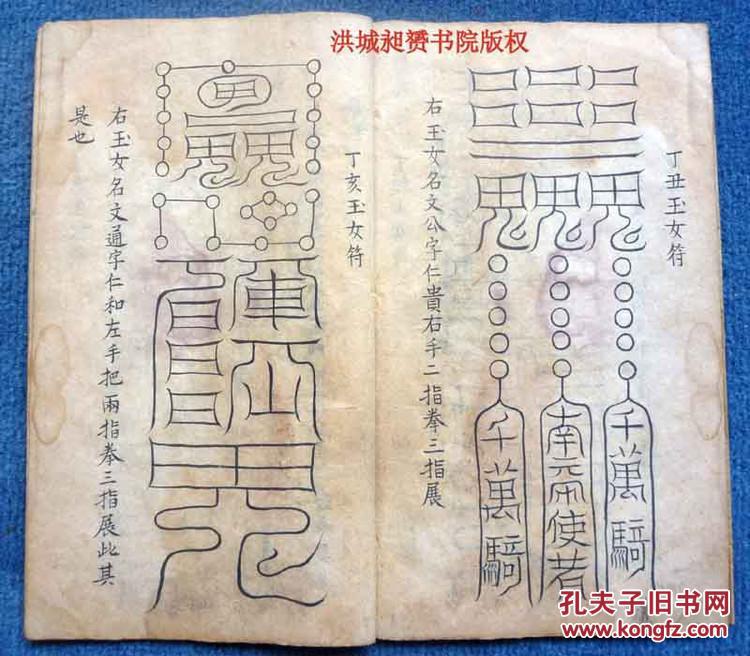 洪城昶赟书院版权
丁丑玉女符
千萬騎
南帝使者
千萬騎
右玉女名文公字仁貴右手二指拳三指展
丁亥玉女符
右玉女名文通字仁和左手把兩指拳三指展此其
是也
孔夫子旧书网
www.kongfz.com